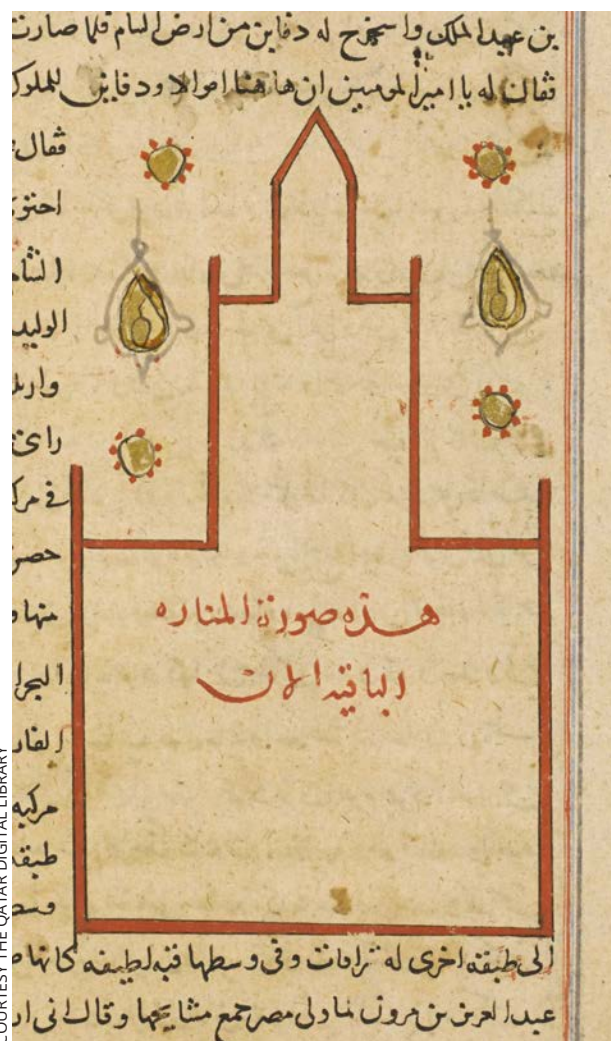 بن عبد الملك واستخرج له دفاين من ارض الشام فلما صارت
فقال له يا امير المومنين ان هاهنا اموالا ودفاين للملوك
فقال
احتو
الشا
الوليد
وارد
راى
فى مر
حصر
منها و
البحر
الفار
مركبه
طبقه
وسط
هذه صورة المناره
الباقيه الان
الى طبقه اخرى له شرافات وفى وسطها قبه لطيفه كانها
عبد العزيز بن مرون لما ولى مصر جمع مشايخها وقال انى ار
COURTESY THE QATAR DIGITAL LIBRARY